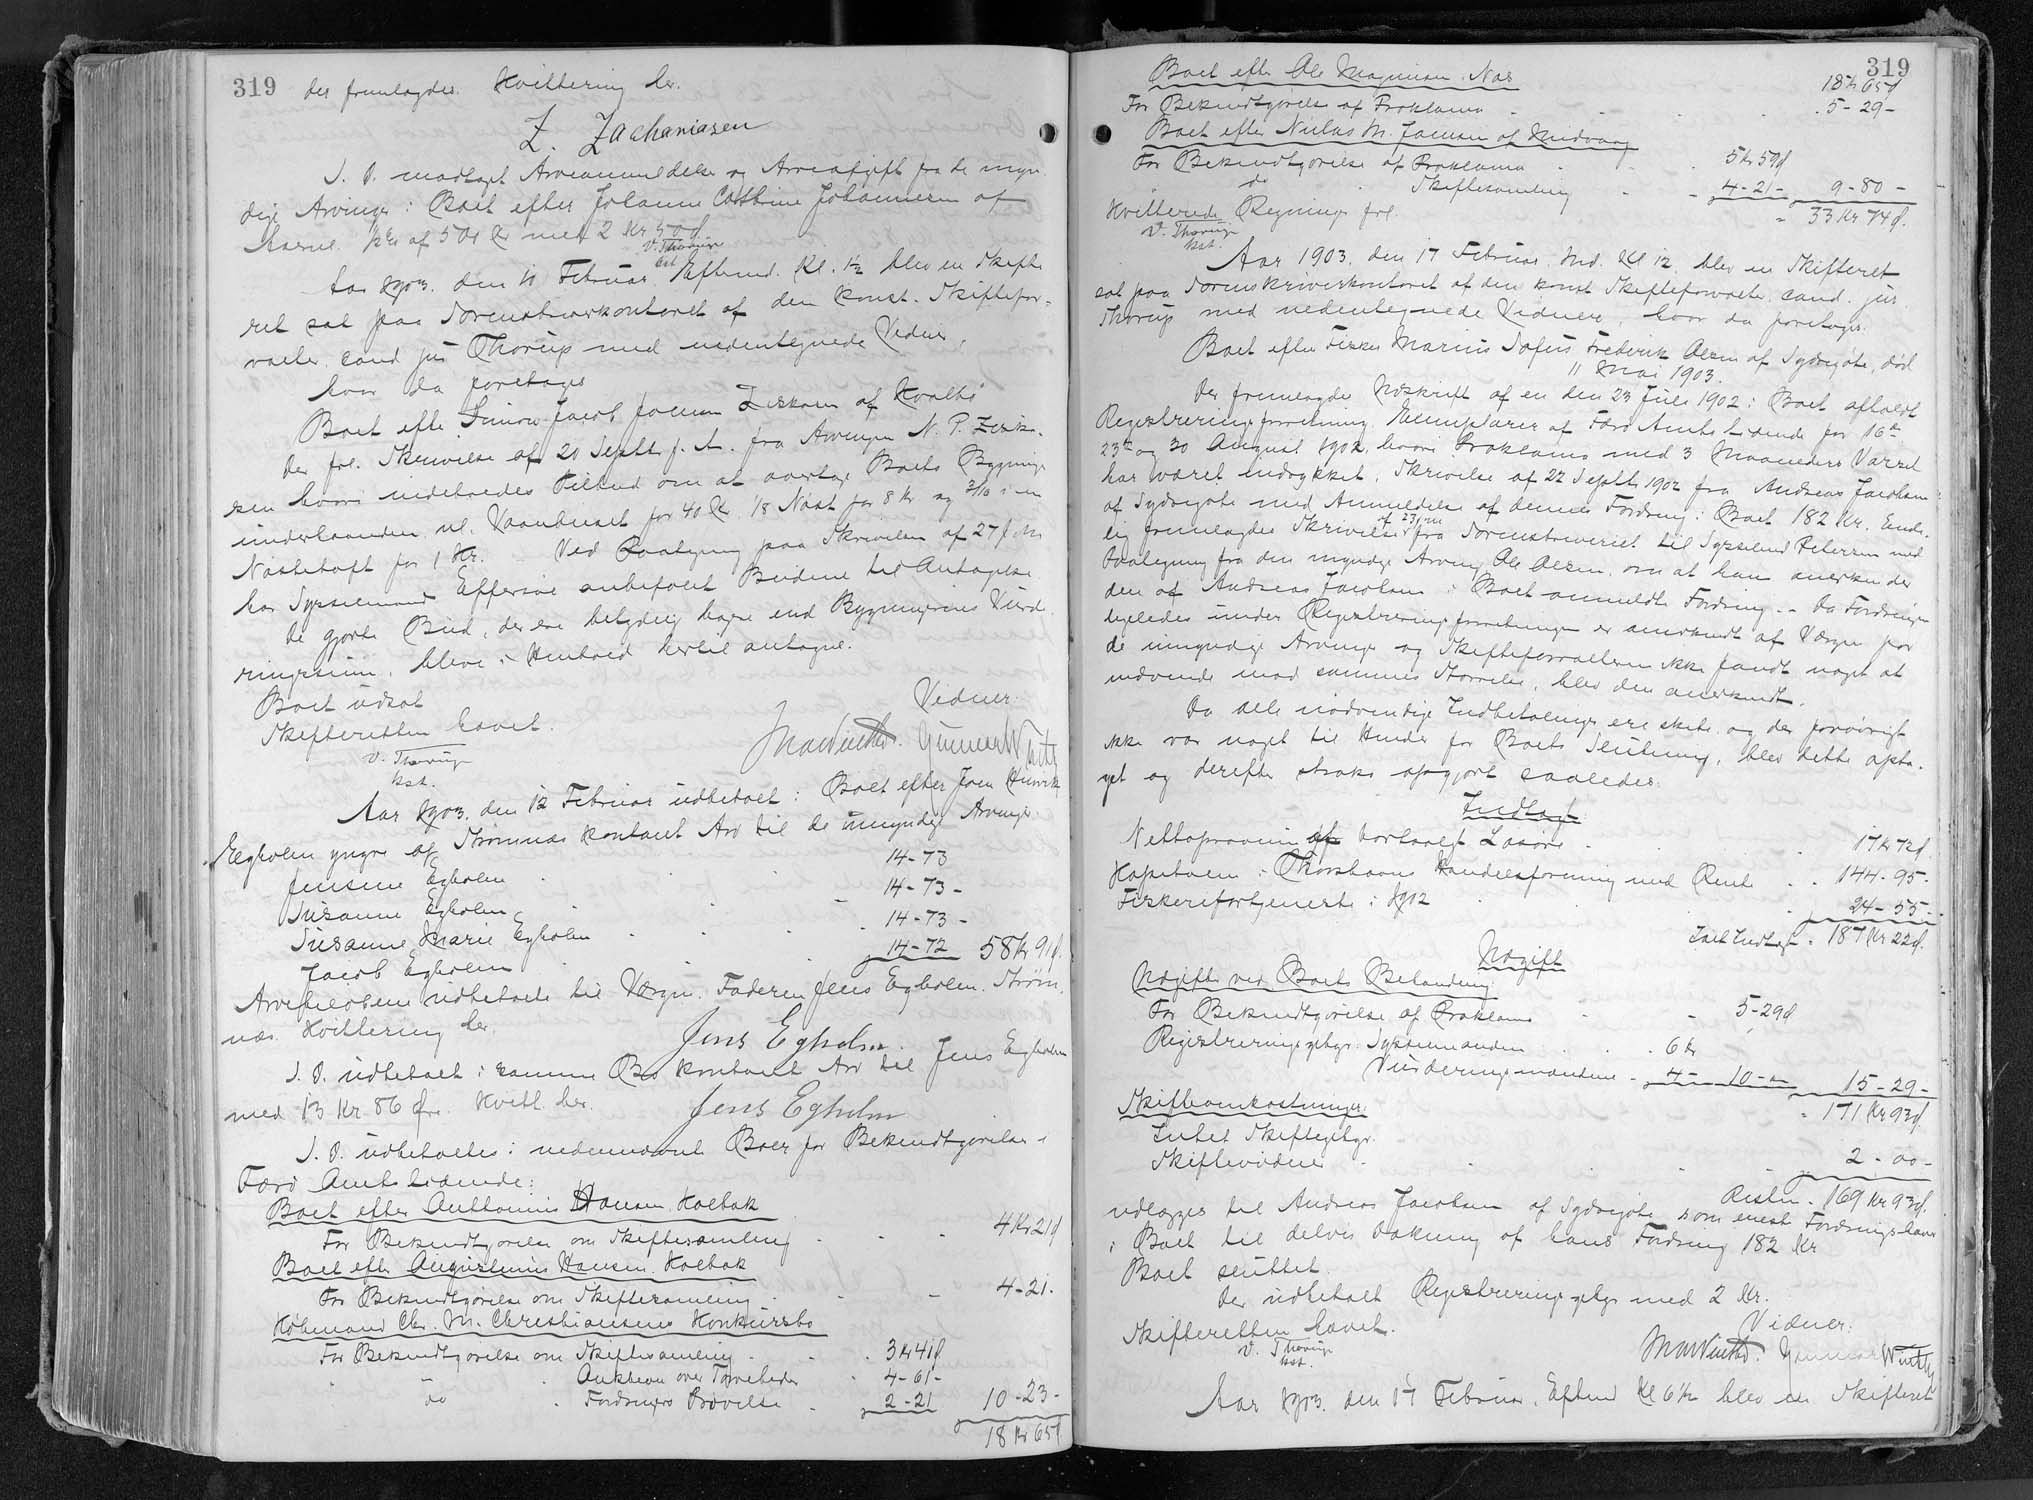 319
der fremlagdes. Kvittering her.
Z. Zachariasen
S. D. modtaget Arveanmeldelse og Arveafgift fra de myn-
dige Arvinger i Boet efter Johanne Cathrine Johannesen af
af 501 Kr med 2 Kr 50 Ø
V. Thorup
kst
Aar 1903. den 10 Februar Eftmd. Kl. 1½ blev en Skifte
ret sat paa Sorenskriverkontoret af den konst. Skiftefor-
valter, cand jur Thorup med undertegnede Vidner,
hvor da foretages
Boet efter Simon Jacob Joensen Ziskasen af Hvalbø
Der frl. Skrivelse af 20 Septb f. A. fra Arvingen N. P. Ziska-
sen hvori indeholdes Tilbud om at overtage Boets Bygninger
underhaanden nl. Vaanhuset for 40 Kr. 1/8 Nøst for 8 Kr og 2/16 i en
Nøstetoft for 1 Kr. Ved Paategning paa Skrivelsen af 27 f. M.
har Sysselmand Effersøe anbefalet Budene til Antagelse
De gjorte Bud, der ere betydelig højere end Bygningernes Vurde
ringssum, bleve i Henhold hertil antagne.
Boet udsat
Skifteretten hævet.
Vidner:
V. Thorup
kst.
M Winther. Gunnar Winther
Aar 1903. den 12 Februar udbetalt i Boet efter Joen Henrik
Egholm yngre af Strømnæs kontant Arv til de umyndige Arvinger
Jensine Egholm 14-73
Susanne Egholm 14-73-
Susanne Marie Egholm 14-73-
Jacob Egholm 14-72 58 Kr 91 Ø.
Arvelodderne udbetalt til Værgen, Faderen Jens Egholm, Strøm-
næs. Kvittering her.
Jens Egholm.
S. D. udbetalt i samme Bo kontant Arv til Jens Egholm
med 13 Kr 86 Øre. Kvitt. her.
Jens Egholm
S. D. udbetaltes i nedennævnte Boer for Bekendtgørelser i
Færø Amtstidende:
Boet efter Anthonius Hansen Kolbak
For Bekendtgørelse om Skiftesamling 4 Kr 21 Ø
Boet efter Augustinus Hansen. Kolbak
For Bekendtgørelse om Skiftesamling 4-21.
Købmand Chr. M. Christiansens Konkursbo
For Bekendtgørelse om Skiftesamling 3 Kr 41 Ø
Auktion over Tørveheder 4-61-
do Fordringers Prøvelse 2-21 10-23-
18 Kr 65 Ø
319
Boet efter Ole Magnusen. Nas
18 Kr 65 Ø
For Bekendtgørelse af Proklama 5-29-
Boet efter Niclas M. Joensen af Midvaag
For Bekendtgørelse af Proklama 5 Kr 59 Ø
do Skiftesamling 4-21- 9-80-
Kvitterede Regninger frl. 33 Kr 74 Ø.
V. Thorup
kst.
Aar 1903. den 17 Februar Md. Kl 12. blev en Skifteret
sat paa Sorenskriverkontoret af den konst Skifteforvalter, cand. jur.
Thorup med nedentegnede Vidner, hvor da foretages.
Boet efter Fisker Marius Sofus Frederik Olsen af Sydrugøte, død
11 Mai 1903.
Der fremlagdes Udskrift af en den 23 Juli 1902 i Boet afholdt
Registreringsforretning. Exemplarer af Færø Amtstidende for 16de
23de og 30 August 1902, hvori Proklama med 3 Maaneders Varsel
har været indrykket, Skrivelse af 22 Septb. 1902 fra Andreas Jacobsen
af Sydrugøte med Anmeldelse af dennes Fordring i Boet 182 Kr. Ende-
lig fremlagdes Skrivelse af 23 fra Sorenskriveriet til Sysselmd Petersen med
Paategning fra den myndige Arving Ole Olsen, om at han anerkender
den af Andreas Jacobsen i Boet anmeldte Fordring. - Da Fordringen
ligeledes under Registreringsforretningen er anerkendt af Værgen for
de umyndige Arvinger og Skifteforvalteren ikke fandt noget at
indvende mod sammes Størrelse, blev den anerkendt.
Da alle nødvendige Indbetalinger ere skete og der forøvrigt
ikke var noget til Hinder for Boets Slutning, blev dette opta-
get og derefter straks opgjort saaledes:
Indtægt
Nettoprovenu af bortsolgt Løsøre 17 Kr 72 Ø.
Kapitalen i Thorshavns Handelsforening med Rente 144-95-
Fiskerifortjeneste i 1902 24-55-
Ialt Indtægt 187 Kr 22 Ø.
Udgift
Udgifter ved Boets Behandling
For Bekendtgørelse af Proklama 5-29 Ø
Registreringsgebyr: Sysselmanden 6 Kr
Vurderingsmændene 4- 10-- 15-29-
171 Kr 93 Ø.
Skifteomkostninger.
Intet Skiftegebyr.
Skiftevidner 2-00-
Resten 169 Kr 93 Ø.
udlægges til Andreas Jacobsen af Sydrugøte som eneste Fordringshaver
i Boet til delvis Dækning af hans Fordring 182 Kr
Boet sluttet.
Der udbetalt Registreringsgebyr med 2 Kr.
Skifteretten hævet.
Vidner.
V. Thorup
kst.
M Winther. Gunnar Winther
Aar 1903. den 17 Februar. Eftmd Kl 6½ blev en Skifteret